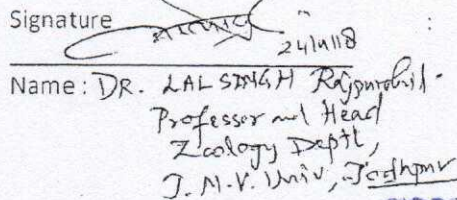 Signature :
Name : DR. LALSINGH Rajpurohit.
Professor and Head
Zoology Deptt,
J. N. V. Univ, Jodhpur